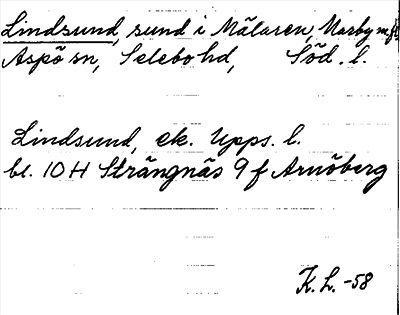 Lindsund, sund i Mälaren, Marby m.fl.
Aspö sn, Selebo hd, Söd. l.
Lindsund, ek. Upps. l.
bl. 10 H Strängnäs 9 f Arnöberg
K. L. -58